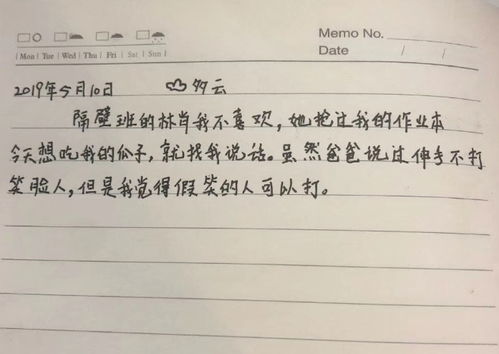 Memo No.
Date / /
| Mon | Tue | Wed | Thu | Fri | Sat | Sun |
2019年5月10日 多云
隔壁班的林肖我不喜欢，她抢过我的作业本
今天想吃我的瓜子，就找我说话。虽然爸爸说过伸手不打
笑脸人，但是我觉得假笑的人可以打。